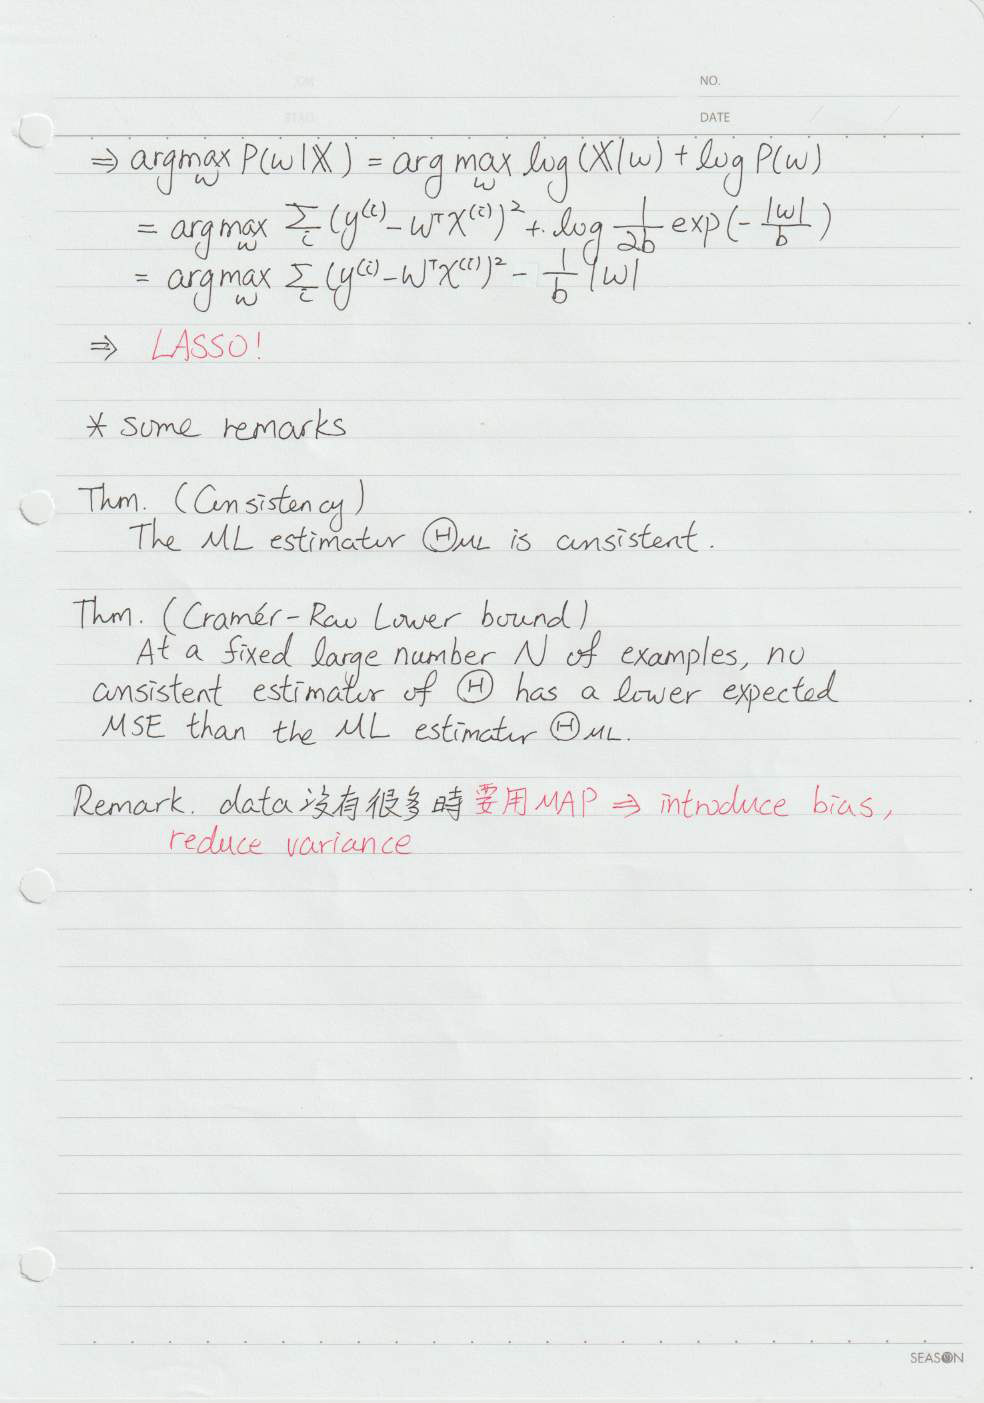 NO.
DATE
⇒ argmax_w P(w|X) = arg max_w log(X|w) + log P(w)
= argmax_w Σ_i (y^(i) - w^T x^(i))^2 + log 1/2b exp(-|w|/b)
= argmax_w Σ_i (y^(i) - w^T x^(i))^2 - 1/b |w|
⇒ LASSO!
* some remarks
Thm. (Consistency)
The ML estimator Ⓗ_ML is consistent.
Thm. (Cramér-Rao Lower bound)
At a fixed large number N of examples, no
consistent estimator of Ⓗ has a lower expected
MSE than the ML estimator Ⓗ_ML.
Remark. data 沒有很多時要用MAP ⇒ introduce bias,
reduce variance
SEASON